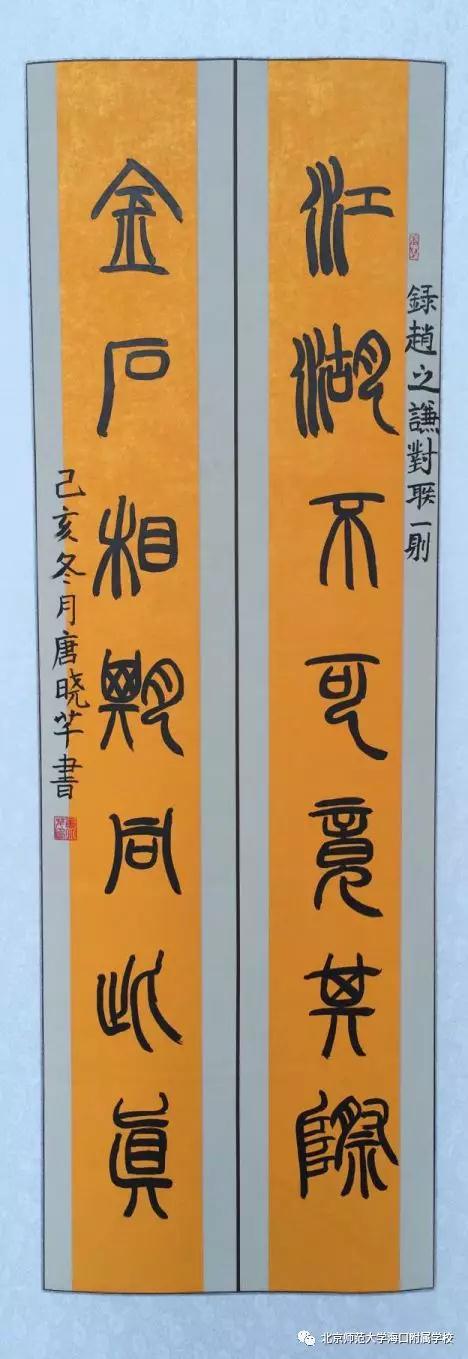 録趙之謙對联一則
江湖不可竟其際
金石相期同此眞
己亥冬月唐晓芊書
北京师范大学海口附属学校